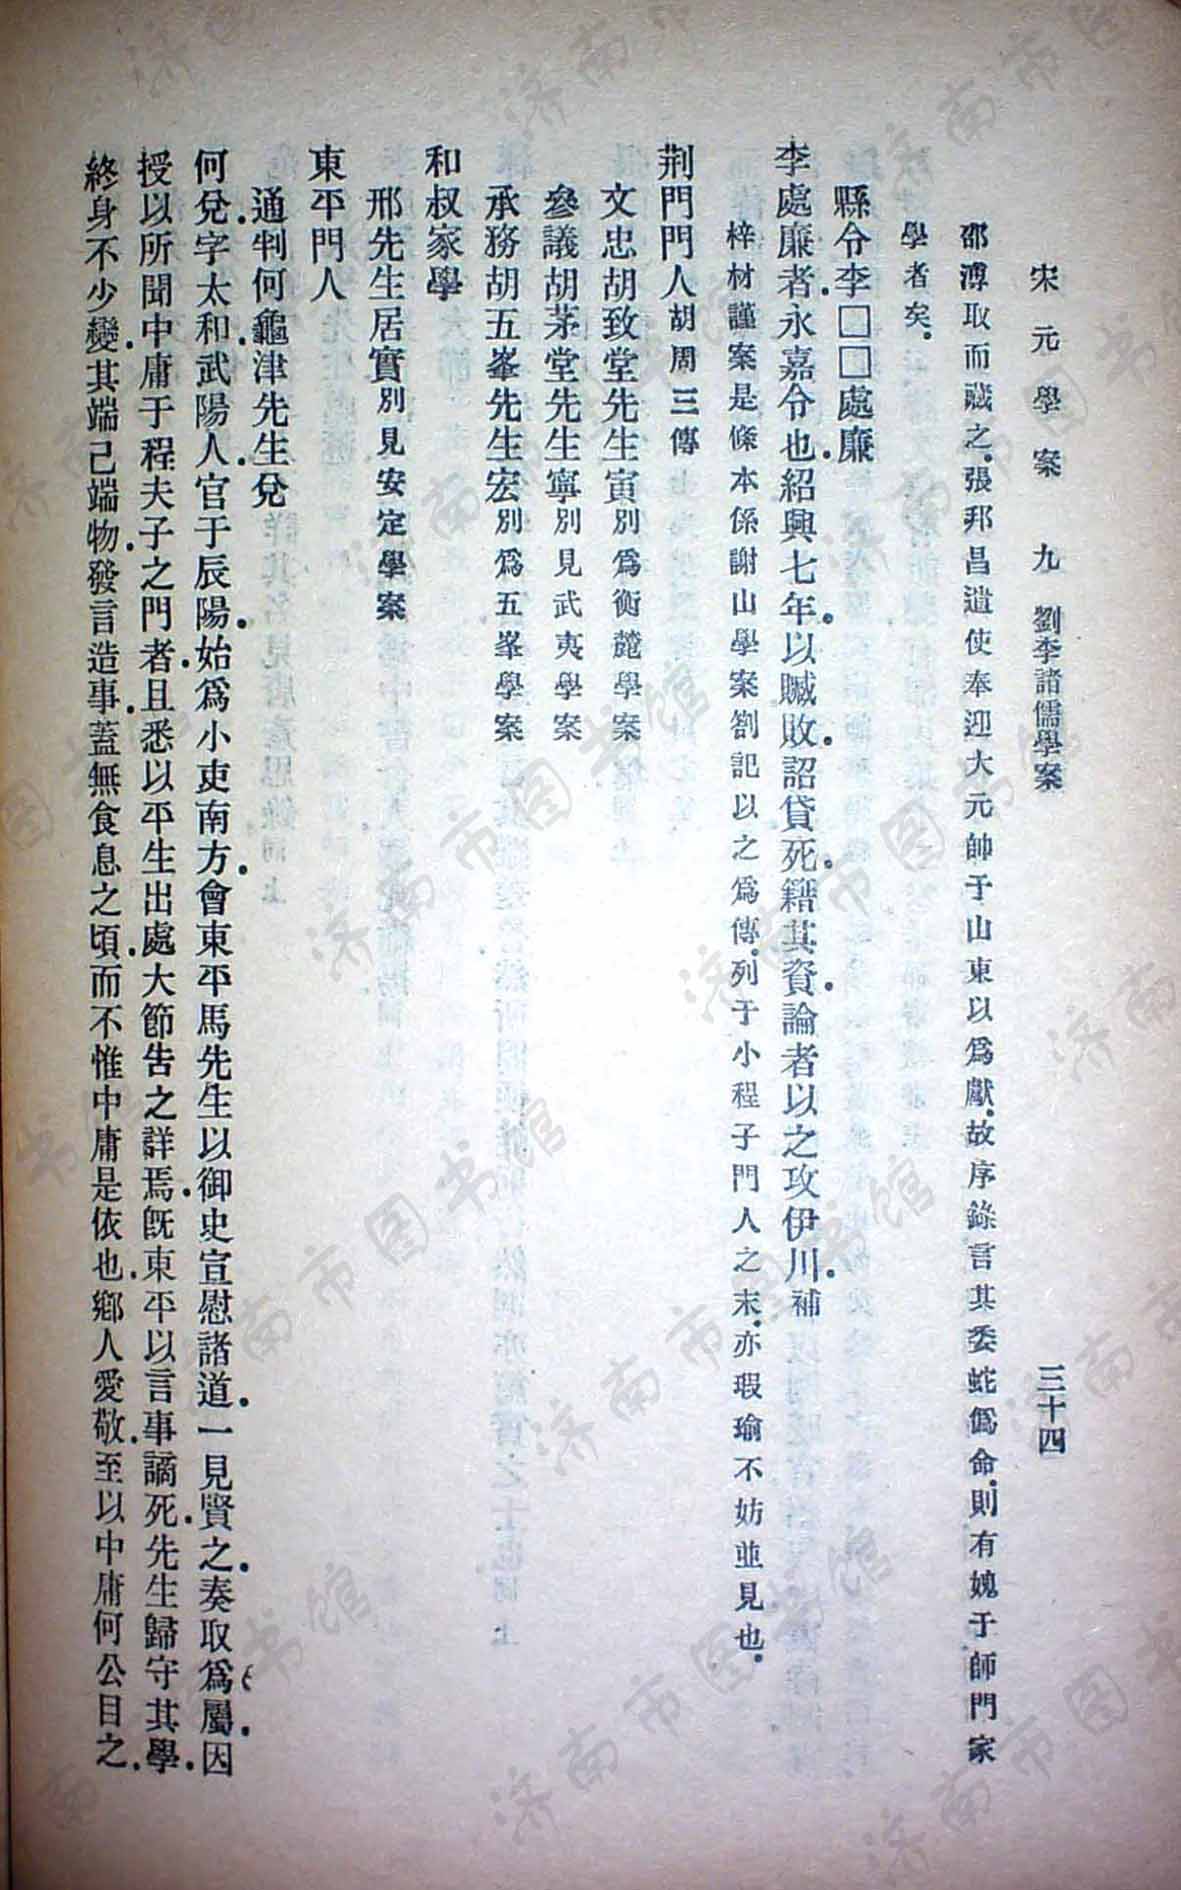 宋元學案 九 劉李諸儒學案 三十四
邵溥取而藏之.張邦昌遣使奉迎大元帥于山東以爲獻.故序錄言其委蛇僞命.則有媿于師門家
學者矣.
縣令李□□處廉
李處廉者.永嘉令也.紹興七年.以贓敗.詔貸死.籍其資.論者以之攻伊川.補
梓材謹案是條本係謝山學案劄記以之爲傳.列于小程子門人之末.亦瑕瑜不妨並見也.
荆門門人胡周三傳
文忠胡致堂先生寅別爲衡麓學案
參議胡茅堂先生寧別見武夷學案
承務胡五峯先生宏別爲五峯學案
和叔家學
邢先生居實別見安定學案
東平門人
通判何龜津先生兌
何兌.字太和.武陽人.官于辰陽.始爲小吏南方.會東平馬先生以御史宣慰諸道.一見賢之.奏取爲屬.因
授以所聞中庸于程夫子之門者.且悉以平生出處大節告之詳焉.旣東平以言事謫死.先生歸守其學.
終身不少變.其端己端物.發言造事.蓋無食息之頃.而不惟中庸是依也.鄉人愛敬.至以中庸何公目之.
济南市图书馆